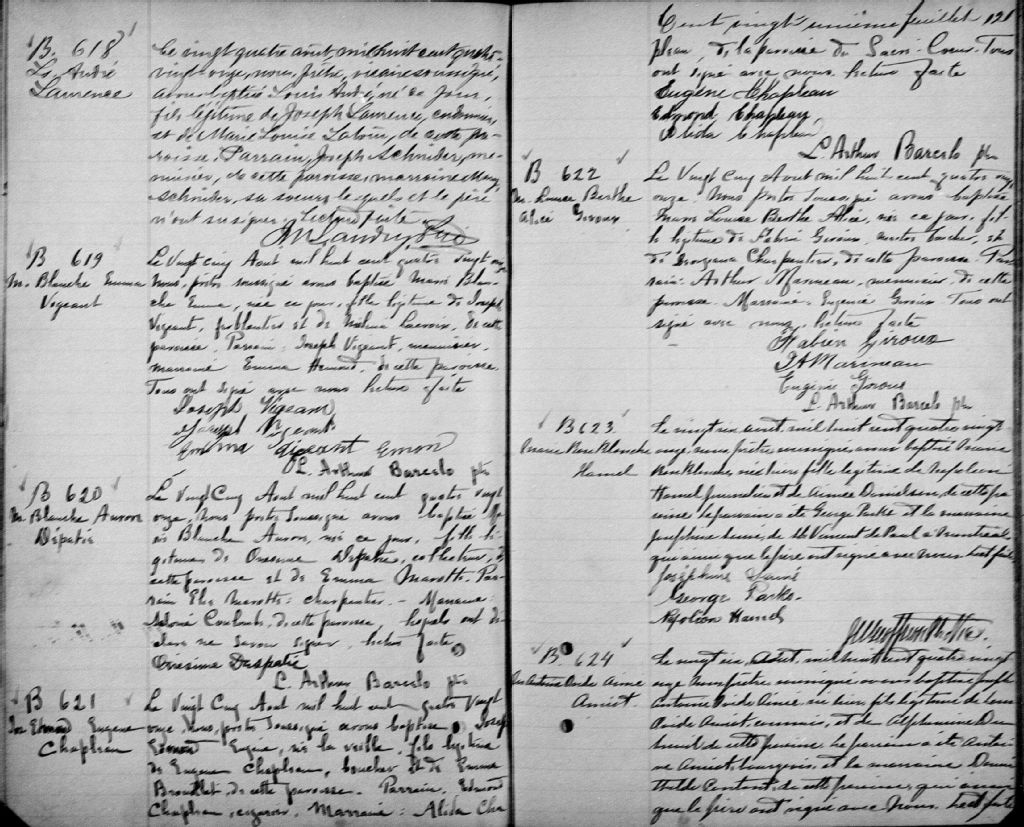 B. 618
Ls. André
Laurence
Le vingt quatre août, mil huit cent quatre-
vingt-onze, nous, prêtre, vicaire soussigné,
avons baptisé Louis André, né ce jour,
fils légitime de Joseph Laurence, cordonnier,
et de Marie Louise Latour, de cette pa-
roisse. Parrain, Joseph Schnider, me-
nuisier, de cette paroisse, marraine Mary
Schnider, sa soeur, lesquels et le père
n'ont su signer. Lecture faite
B 619
M. Blanche Emma
Vegeant
Le Vingt cinq Aout mil huit cent quatre vingt onze
Nous, prêtre soussigné avons baptisé Marie Blan-
che Emma, née ce jour, fille légitime de Joseph
Vegeant, ferblantier et de lacroix, de cette
paroisse. Parrain: Joseph Vegeant, menuisier,
marraine Emma Hemond, de cette paroisse.
Tous ont signé avec nous lecture faite
Joseph Vigeant
Joseph Vigeant
Emma Vigeant Emon
L. Arthur Barcelo ptr
B 620
M. Blanche Aurore
Depatie
Le Vingt Cinq Aout mil huit cent quatre vingt
onze, Nous prêtre Soussigné avons baptisé Ma-
rie Blanche Aurore, née ce jour, fille lé-
gitime de Onesime Depatie, collecteur, de
cette paroisse et de Emma Marotte. Par-
rain Marotte: charpentier. - Marraine:
Coulomb, de cette paroisse, lesquels ont dé-
claré ne savoir signer, lecture faite
Onesime Despatie
L. Arthur Barcelo ptr
B 621
Jos Edmond Eugene
Chapleau
Le Vingt Cinq Aout mil huit cent quatre Vingt
onze, Nous, prêtre Soussigné avons baptisé Joseph
Edmond Eugene, né la veille, fils légitime
de Eugene Chapleau, boucher et de Emma
Brouillet, de cette paroisse. Parrain, Edmond
Chapleau, Marraine: Alida Cha
Cent vingt unième feuillet 121
pleau, de la paroisse du Sacré-Coeur. Tous
ont signé avec nous lecture faite
Eugène Chapleau
Edmond Chapleau
Alida Chapleau
L. Arthur Barcelo ptr
B 622
M. Louise Berthe
Alice Giroux
Le Vingt Cinq Aout mil huit cent quatre vingt
onze. Nous prêtre Soussigné avons baptisé
Marie Louise Berthe Alice, née ce jour, fil-
le légitime de Fabien Giroux, boucher, et
de Georgiana Charpentier, de cette paroisse. Par-
rain: Arthur Marineau, menuisier de cette
paroisse. Marraine: Eugenie Giroux Tous ont
signé avec nous, lecture faite
Fabien Giroux
Marineau
Eugénie Giroux
L. Arthur Barcelo ptr
B 623
Hamel
Le vingt six août mil huit cent quatre vingt-
onze, nous prêtre soussigné, avons baptisé
Blanche, née hier fille légitime de Napoléon
Hamel journalier et de Aimée Danielson, de cette pa-
roisse. Le parrain a été George Parks et la marraine
Joséphine de St Vincent de Paul à Montréal,
qui ainsi que le père ont signé avec nous. Lect. faite
Joséphine
George Parks.
Hamel
B. 624
Antoine Ovide Aimé
Amiot.
Le vingt six, Août, mil huit cent quatre vingt
onze Nous prêtre soussigné avons baptisé Joseph
Antoine Ovide Aimé né hier, fils légitime de
Ovide Amiot commis, et de Alphonsine
de cette paroisse. Le parrain a été Antoi-
ne Amiot, bourgeois, et la marraine
de cette paroisse, qui ainsi
que le père ont signé avec Nous. Lect. faite